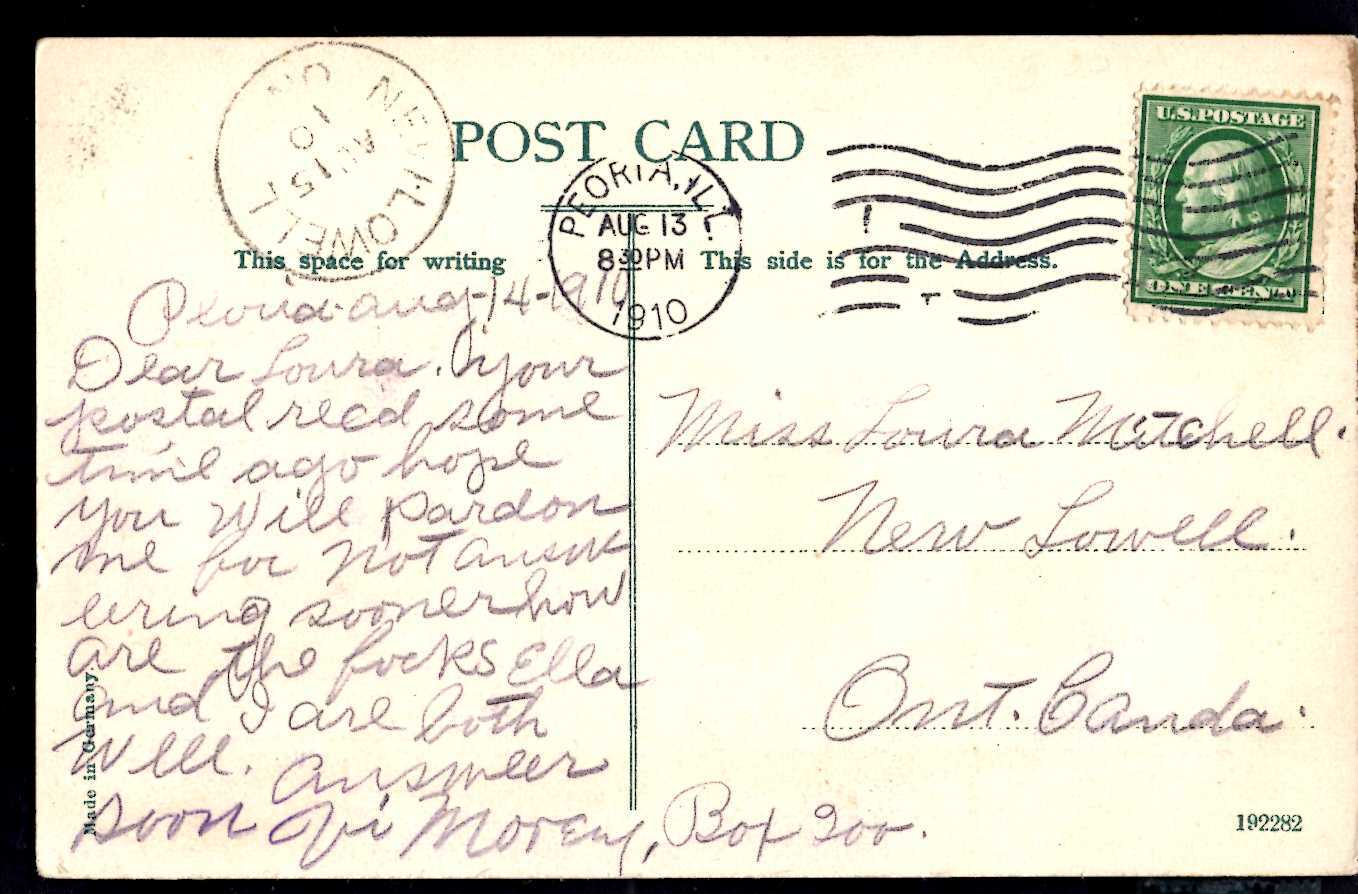 NEW LOWELL
AU 15
10
ONT
POST CARD
PEORIA, ILL.
AUG 13
8 30 PM
1910
U.S. POSTAGE
ONE CENT
This space for writing
This side is for the Address.
Peoria aug-14-1910
Dear Loura. your
postal recd some
time ago hope
you will pardon
me for not answ
eering sooner how
are the focks Ella
and I are both
Well. answeer
soon Vi Moreny, Box 200.
Miss Loura Mitchell.
New Lowell.
Ont. Canda.
Made in Germany.
192282